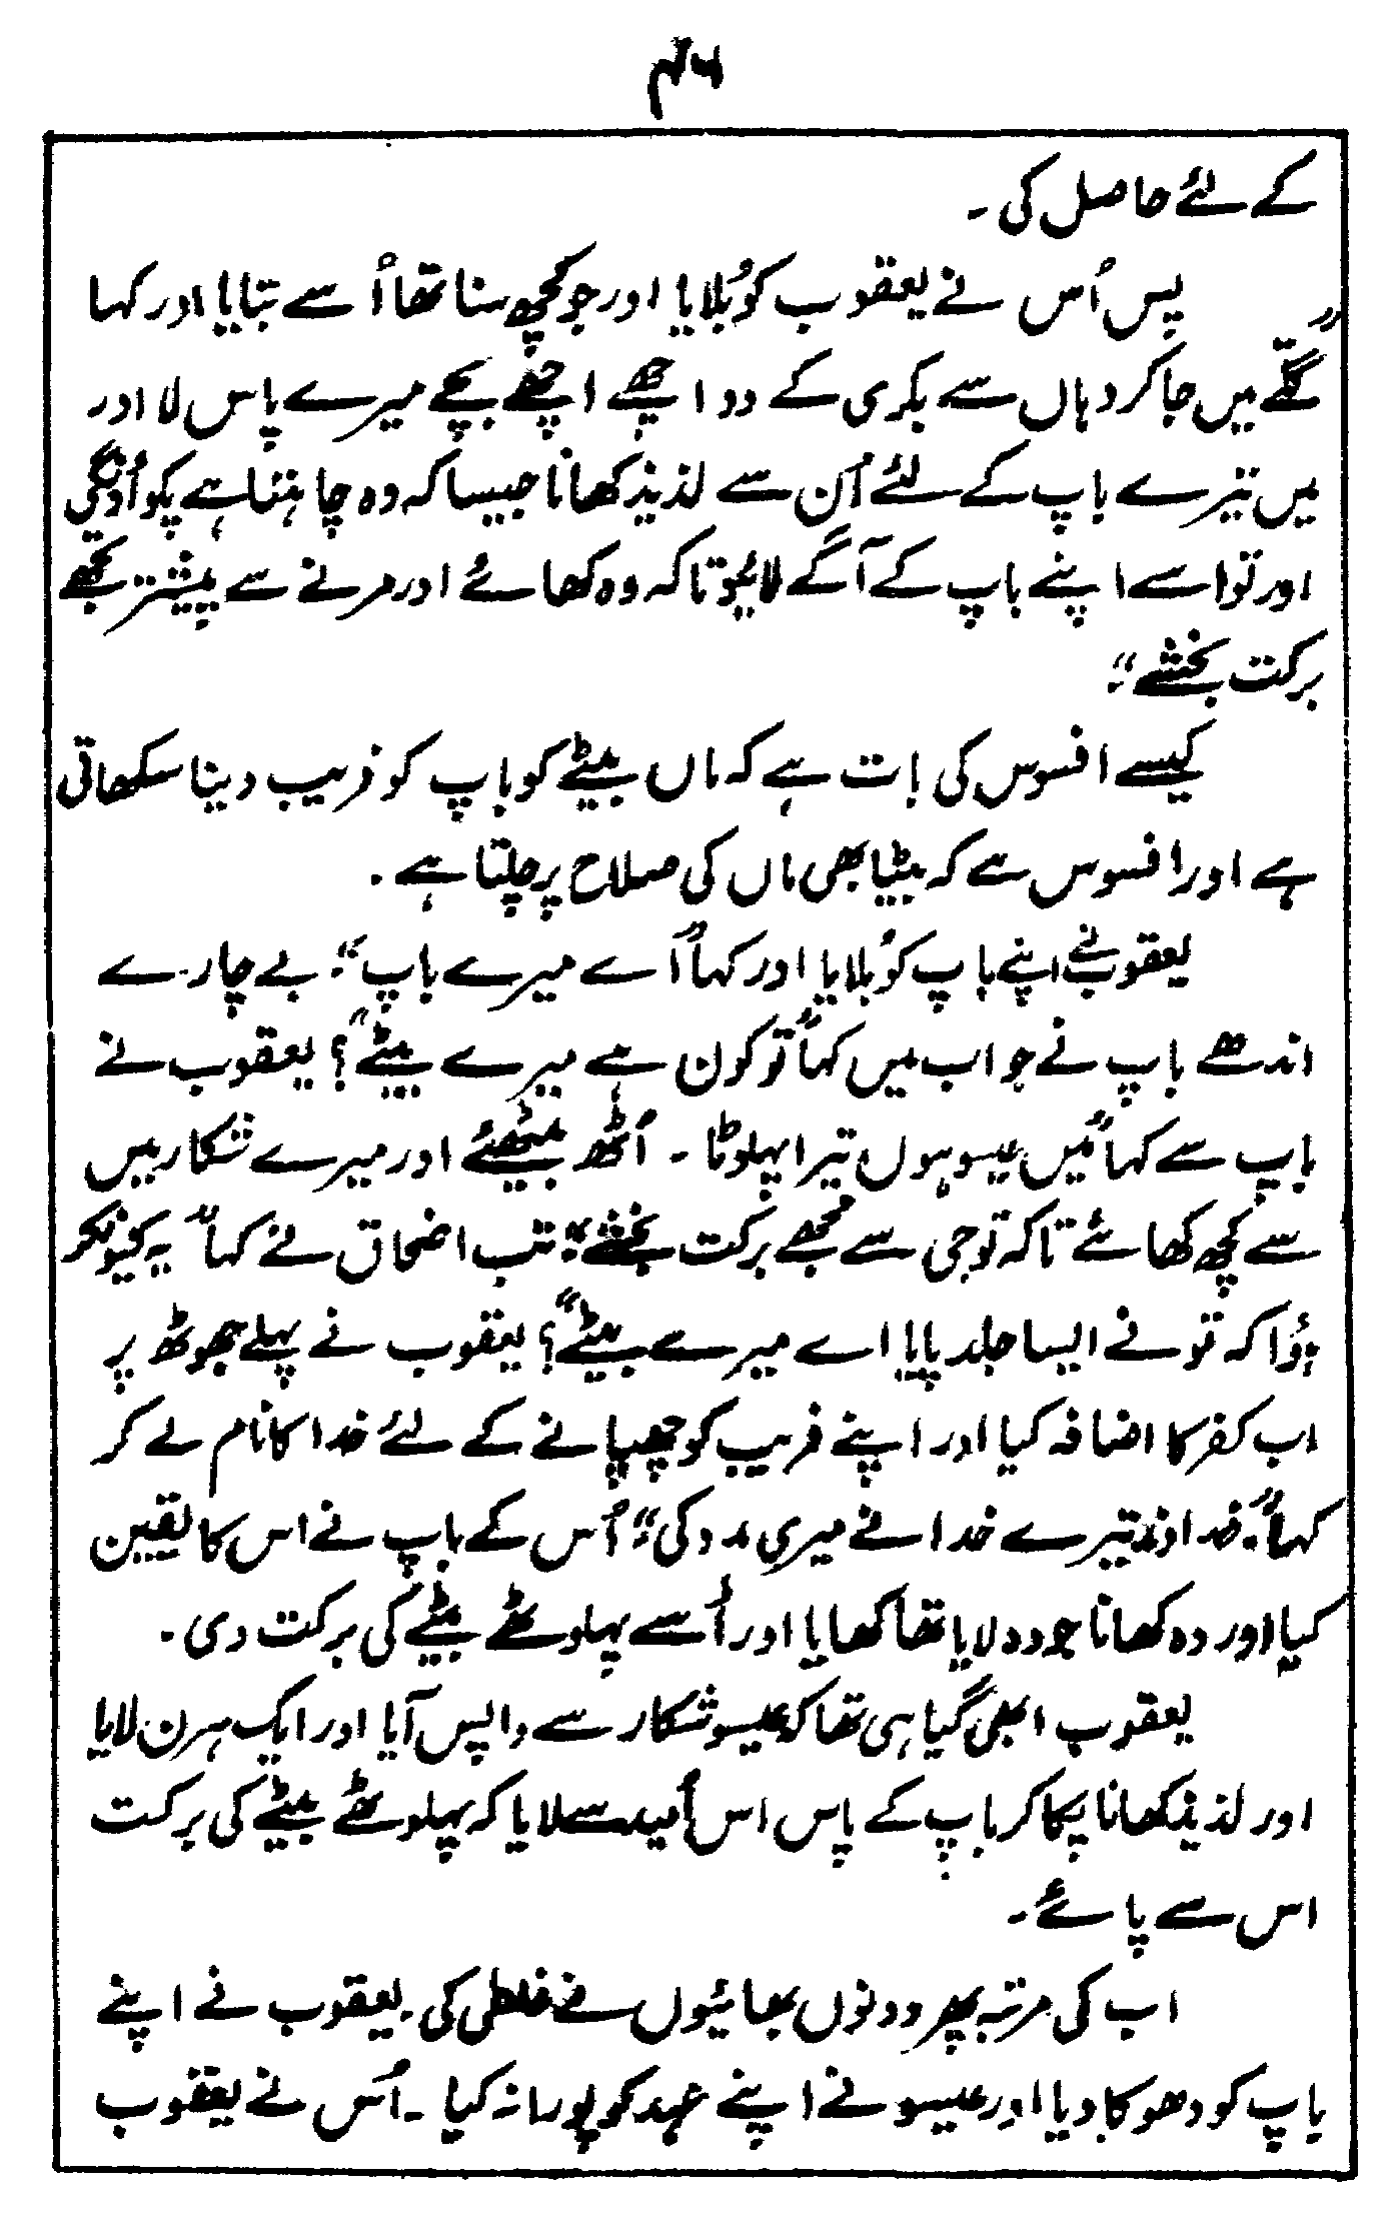 ۴۶
کے لئے حاصل کی ۔
پس اُس نے یعقوب کو بُلایا اور جو کچھ سنا تھا اُسے بتایا اور کہا
”گلّے میں جا کر وہاں سے بکری کے دو اچھے اچھے بچے میرے پاس لا اور
میں تیرے باپ کے لئے اُن سے لذیذ کھانا جیسا کہ وہ چاہتا ہے پکواؤنگی
اور تو اسے اپنے باپ کے آگے لائیو تاکہ وہ کھائے اور مرنے سے پیشتر تجھے
برکت بخشے“۔
کیسے افسوس کی بات ہے کہ ماں بیٹے کو باپ کو فریب دینا سکھاتی
ہے اور افسوس ہے کہ بیٹا بھی ماں کی صلاح پر چلتا ہے ۔
یعقوب نے اپنے باپ کو بُلایا اور کہا ”اَے میرے باپ“۔ بے چارے
اندھے باپ نے جواب میں کہا ”تو کون ہے میرے بیٹے“؟ یعقوب نے
باپ سے کہا ”مَیں عیسو ہوں تیرا پہلوٹا ۔ اُٹھ بیٹھئے اور میرے شکار میں
سے کچھ کھائے تاکہ تو جی سے مجھے برکت بخشے“۔ تب اضحاق نے کہا ”یہ کیونکر
ہؤا کہ تو نے ایسا جلد پایا اے میرے بیٹے“؟ یعقوب نے پہلے جھوٹھ پر
اب کفر کا اضافہ کیا اور اپنے فریب کو چھپانے کے لئے خدا کا نام لے کر
کہا ”خداوند تیرے خدا نے میری مدد کی“۔ اُس کے باپ نے اس کا یقین
کیا اور وہ کھانا جو وہ لایا تھا کھایا اور اُسے پہلوٹھے بیٹے کی برکت دی ۔
یعقوب ابھی گیا ہی تھا کہ عیسو شکار سے واپس آیا اور ایک ہرن لایا
اور لذیذ کھانا پکا کر باپ کے پاس اس اُمید سے لایا کہ پہلوٹھے بیٹے کی برکت
اس سے پائے ۔
اب کی مرتبہ پھر دونوں بھائیوں نے غلطی کی ۔ یعقوب نے اپنے
باپ کو دھوکا دیا اور عیسو نے اپنے عہد کو پورا نہ کیا ۔ اُس نے یعقوب